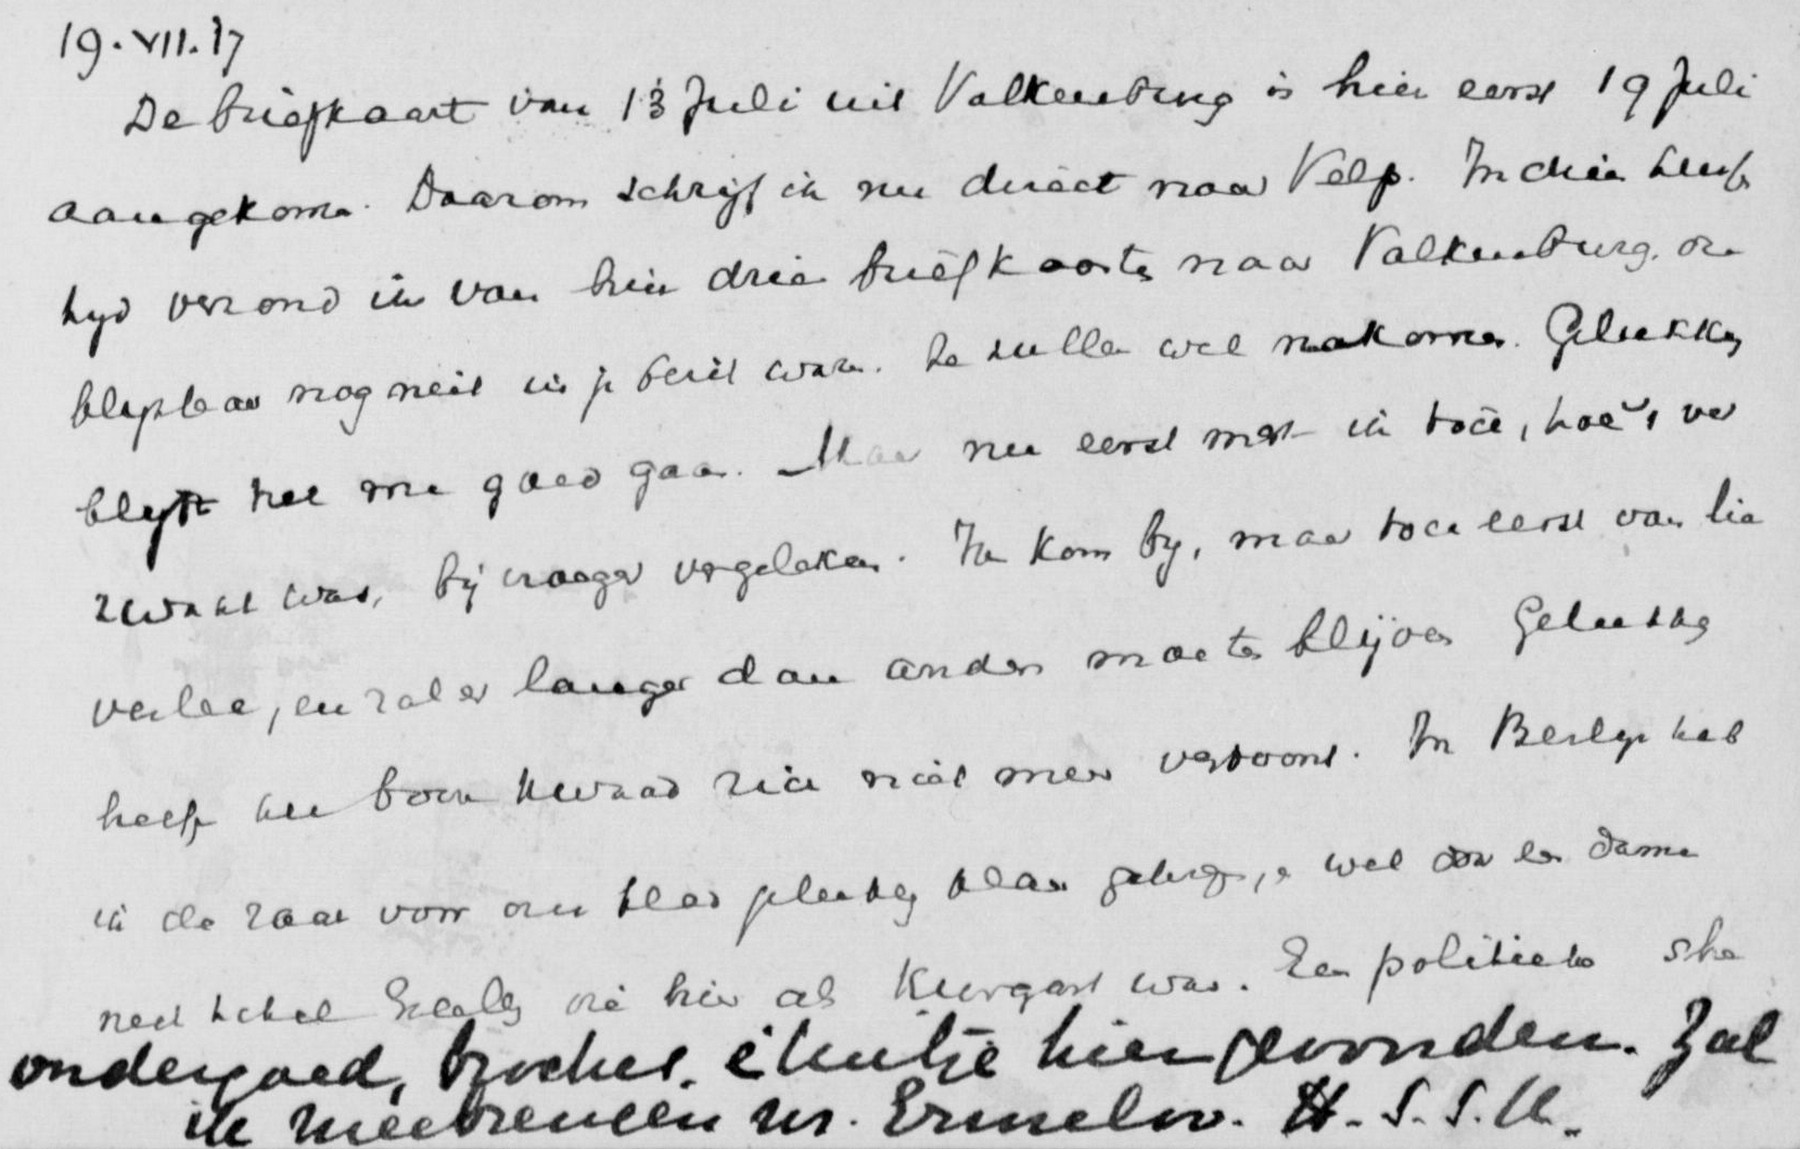 19.VII.17
De briefkaart van 13 Juli uit Valkenburg is hier eerst 19 Juli
aangekomen. Daarom schrijf ik nu direct naar Velp. In dien tusschen
tijd verzond ik van hier drie briefkaarten naar Valkenburg, die
blijkbaar nog niet in je bezit waren. Ze zullen wel nakomen. Gelukkig
blijft het me goed gaan. Maar nu eerst merk ik toch, hoe ver
zwakt was, bij vroeger vergeleken. Ik kom bij, maar toch eerst van lie
verlee, en zal er langer dan anders moeten blijven. Gelukkig
heeft het kwaad zich niet meer vertoond. In
in de zaal voor ons blad plaats, wel door een dame
die hier als Kurgast was. Een politieke
ondergoed, broches, etuitje hier gevonden. Zal
ik meebrengen nr. Ermelo. H.S.S.K.